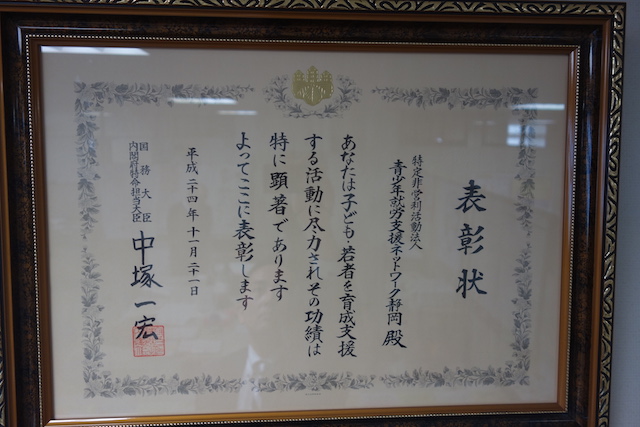 表彰状
特定非営利活動法人
青少年就労支援ネットワーク静岡 殿
あなたは子ども・若者を育成支援
する活動に尽力されその功績は
特に顕著であります
よってここに表彰します
平成二十四年十一月二十一日
国務大臣
内閣府特命担当大臣
中塚一宏